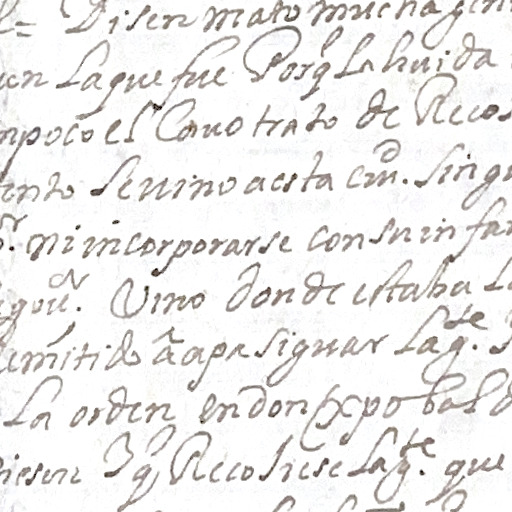 = Disen mato mucha gen
un La que fue Porq La huida
mpoco el Cavo trato de Recos
ento Se vino a esta ciu.d Singu
or. ni incorporarse con su infan
gov.or Vino donde estaba La
emitido â apasiguar La g.te
La orden en don Xpobal d
iesen Y q Recojiese La g.te que